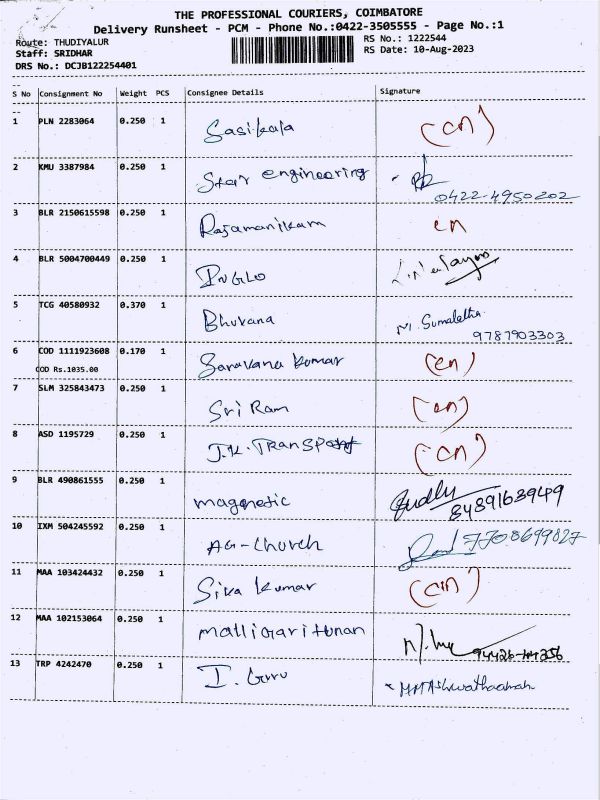 THE PROFESSIONAL COURIERS, COIMBATORE
Delivery Runsheet - PCM - Phone No.:0422-3505555 - Page No.:1
Route: THUDIYALUR RS No.: 1222544
Staff: SRIDHAR RS Date: 10-Aug-2023
DRS No.: DCJB122254401
S No Consignment No Weight PCS Consignee Details Signature
1 PLN 2283064 0.250 1 Sasikala (cn)
2 KMU 3387984 0.250 1 Star engineering
0422-4950202
3 BLR 2150615598 0.250 1 Rajamanikam cn
4 BLR 5004700449 0.250 1 INGLO
5 TCG 40580932 0.370 1 Bhuvana N. Sumalatha
9787903303
6 COD 1111923608 0.170 1 Saravana kumar (cn)
COD Rs.1035.00
7 SLM 325843473 0.250 1 Sri Ram (cn)
8 ASD 1195729 0.250 1 J.K. Transport (cn)
9 BLR 490861555 0.250 1 magnetic
8489163949
10 IXM 504245592 0.250 1 AG-Church 7708699827
11 MAA 103424432 0.250 1 Siva kumar (cn)
12 MAA 102153064 0.250 1
13 TRP 4242470 0.250 1 I. Guru